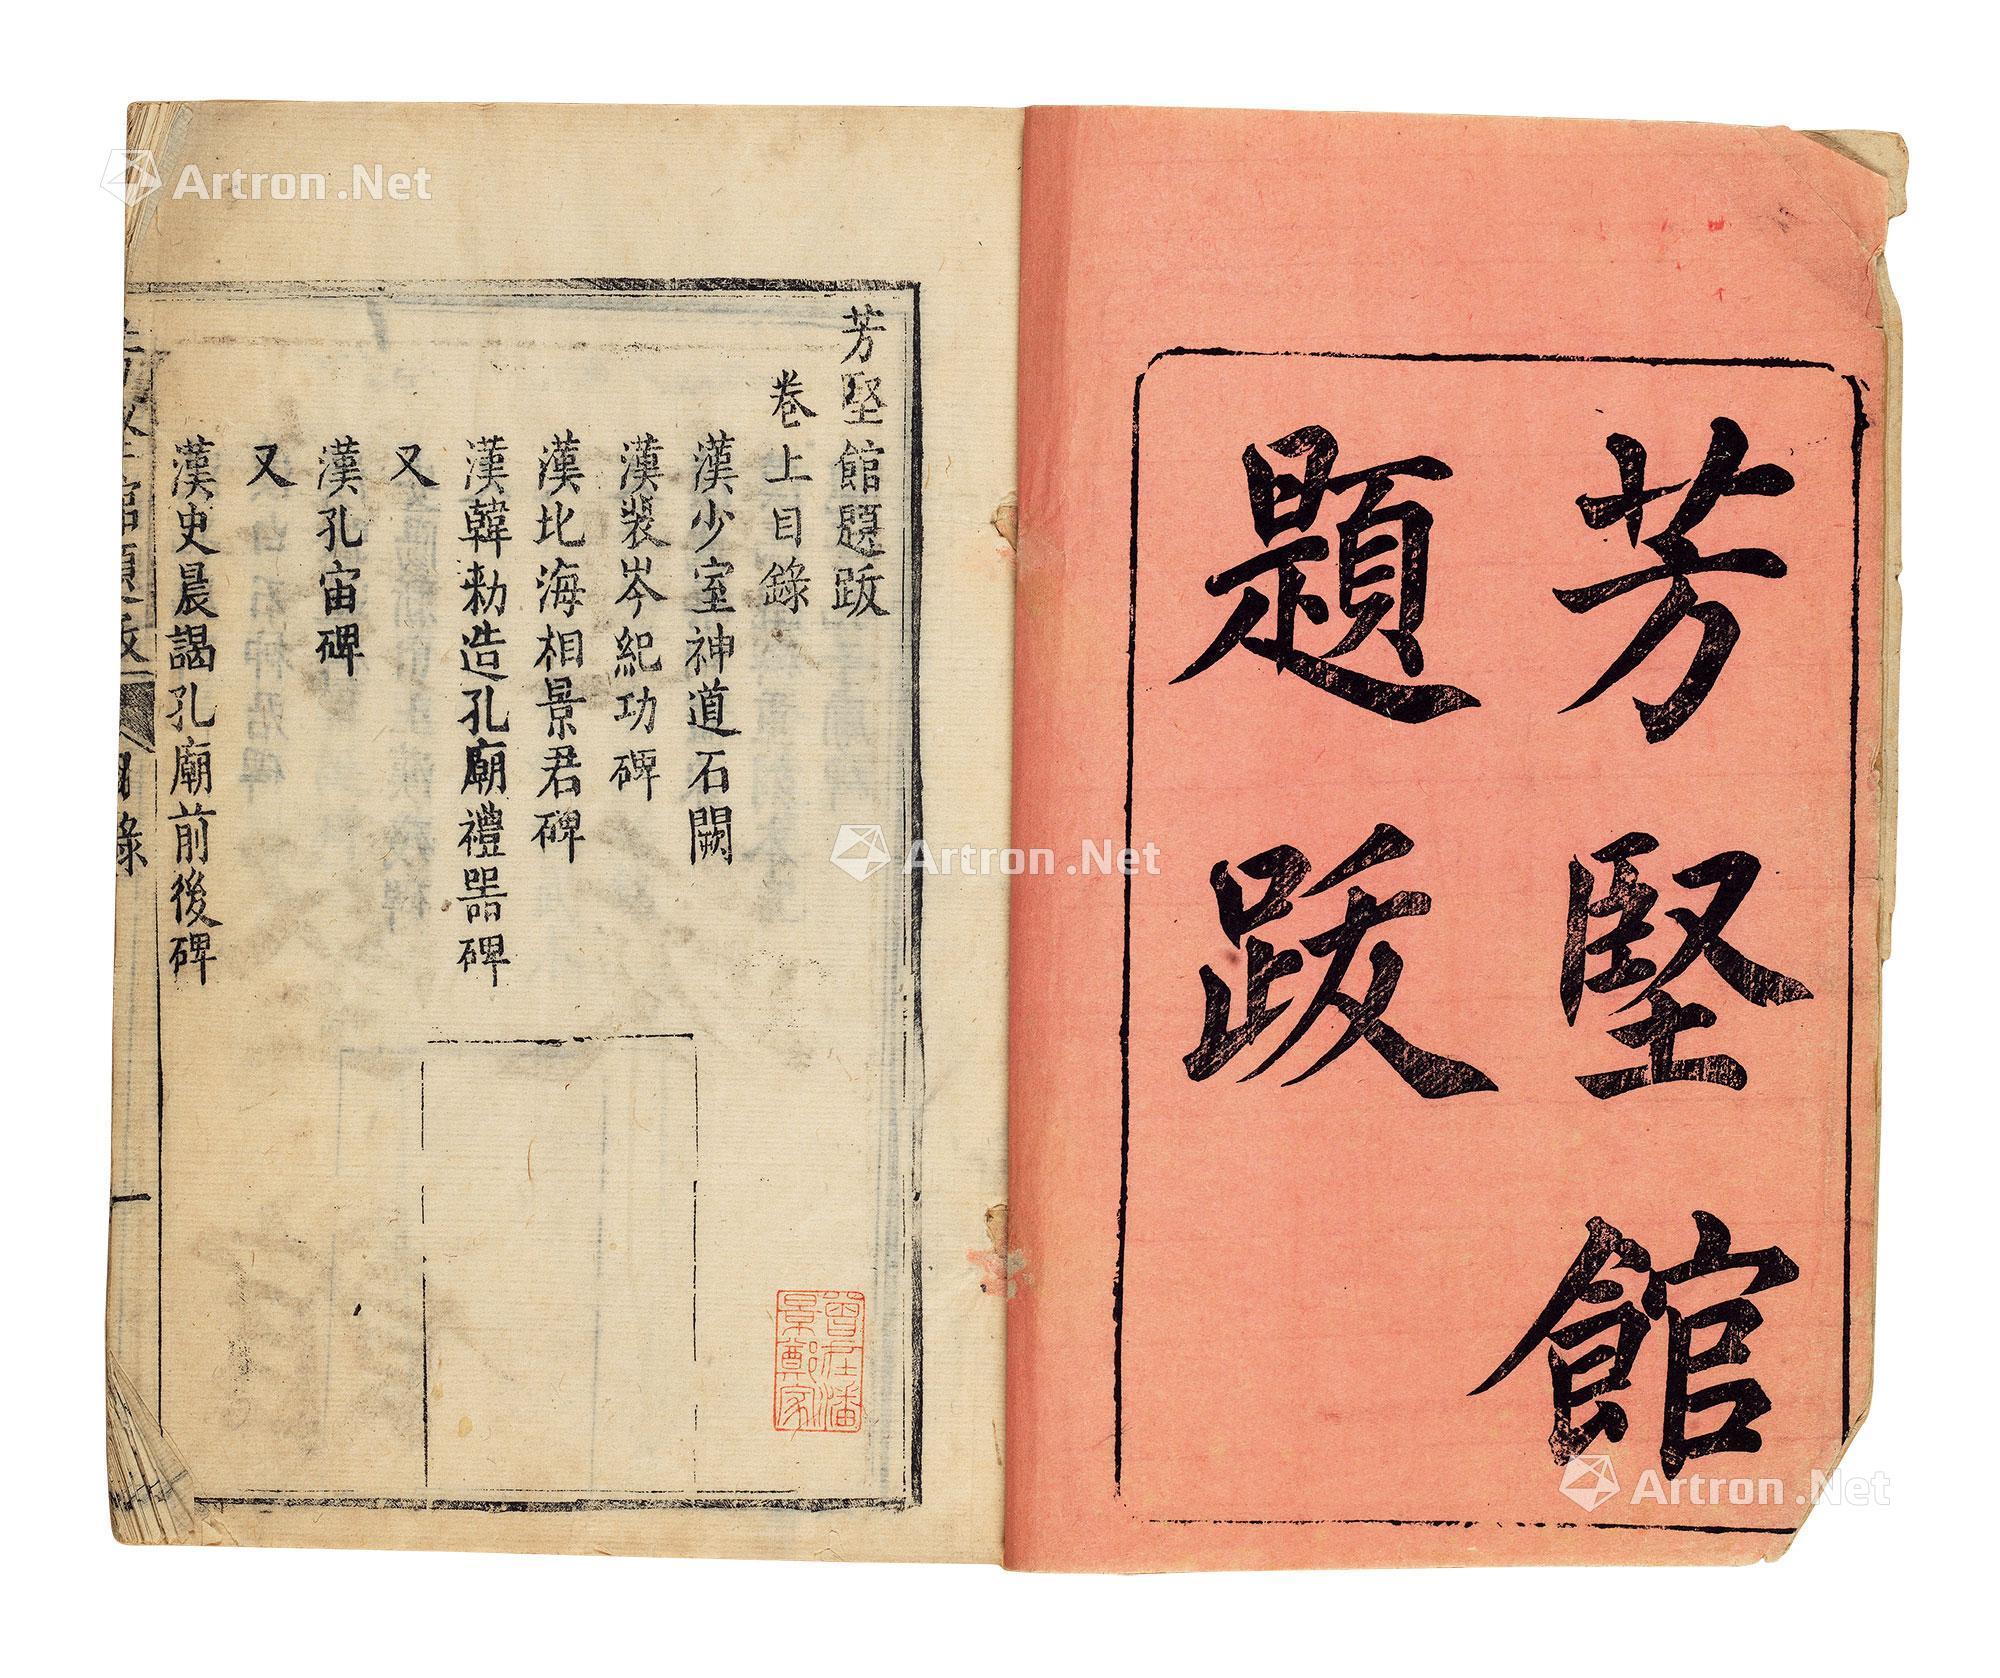 芳堅館
題跋
芳堅館題跋
卷上目錄
漢少室神道石闕
漢裴岑紀功碑
漢北海相景君碑
漢韓勑造孔廟禮器碑
又
漢孔宙碑
又
漢史晨謁孔廟前後碑
目錄
一
曾在潘
景鄭家
Artron.Net
Artron.Net
Artron.Net